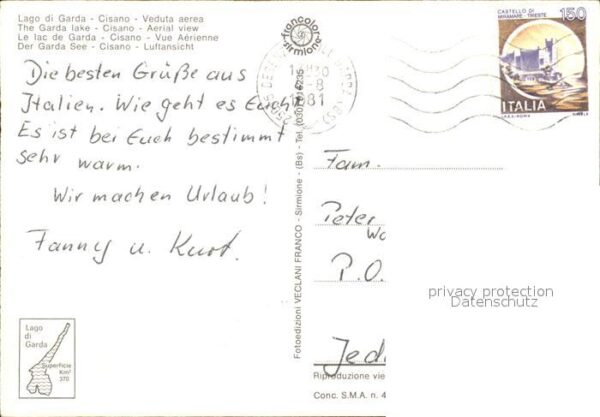 Lago di Garda - Cisano - Veduta aerea
The Garda lake - Cisano - Aerial view
Le lac de Garda - Cisano - Vue Aérienne
Der Garda See - Cisano - Luftansicht
Die besten Grüße aus
Italien. Wie geht es Euch?
Es ist bei Euch bestimmt
sehr warm.
Wir machen Urlaub!
Fanny u. Kurt.
Lago
di
Garda
Superficie
Km²
370
francolor
sirmione
Fotoedizioni VECLANI FRANCO - Sirmione - (Bs) - Tel. (030)
1981
CASTELLO DI
MIRAMARE - TRIESTE
150
ITALIA
Fam.
Peter
P.O.
Jed
privacy protection
Datenschutz
Riproduzione vie
Conc. S.M.A. n. 4